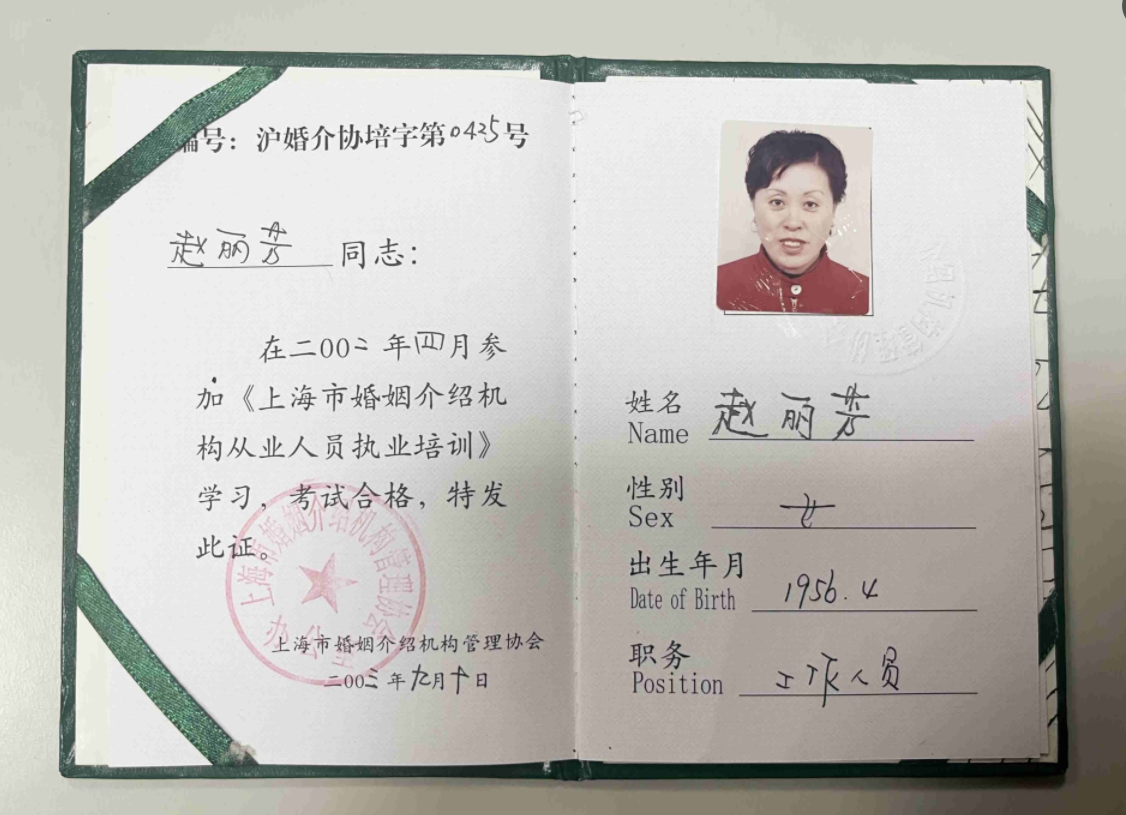 编号：沪婚介协培字第0425号
赵丽芳 同志：
在二00二年四月参
加《上海市婚姻介绍机
构从业人员执业培训》
学习，考试合格，特发
此证。
上海市婚姻介绍机构管理协会
办公室
上海市婚姻介绍机构管理协会
二00三年九月十日
姓名 赵丽芳
Name
性别 女
Sex
出生年月 1956.4
Date of Birth
职务 工作人员
Position